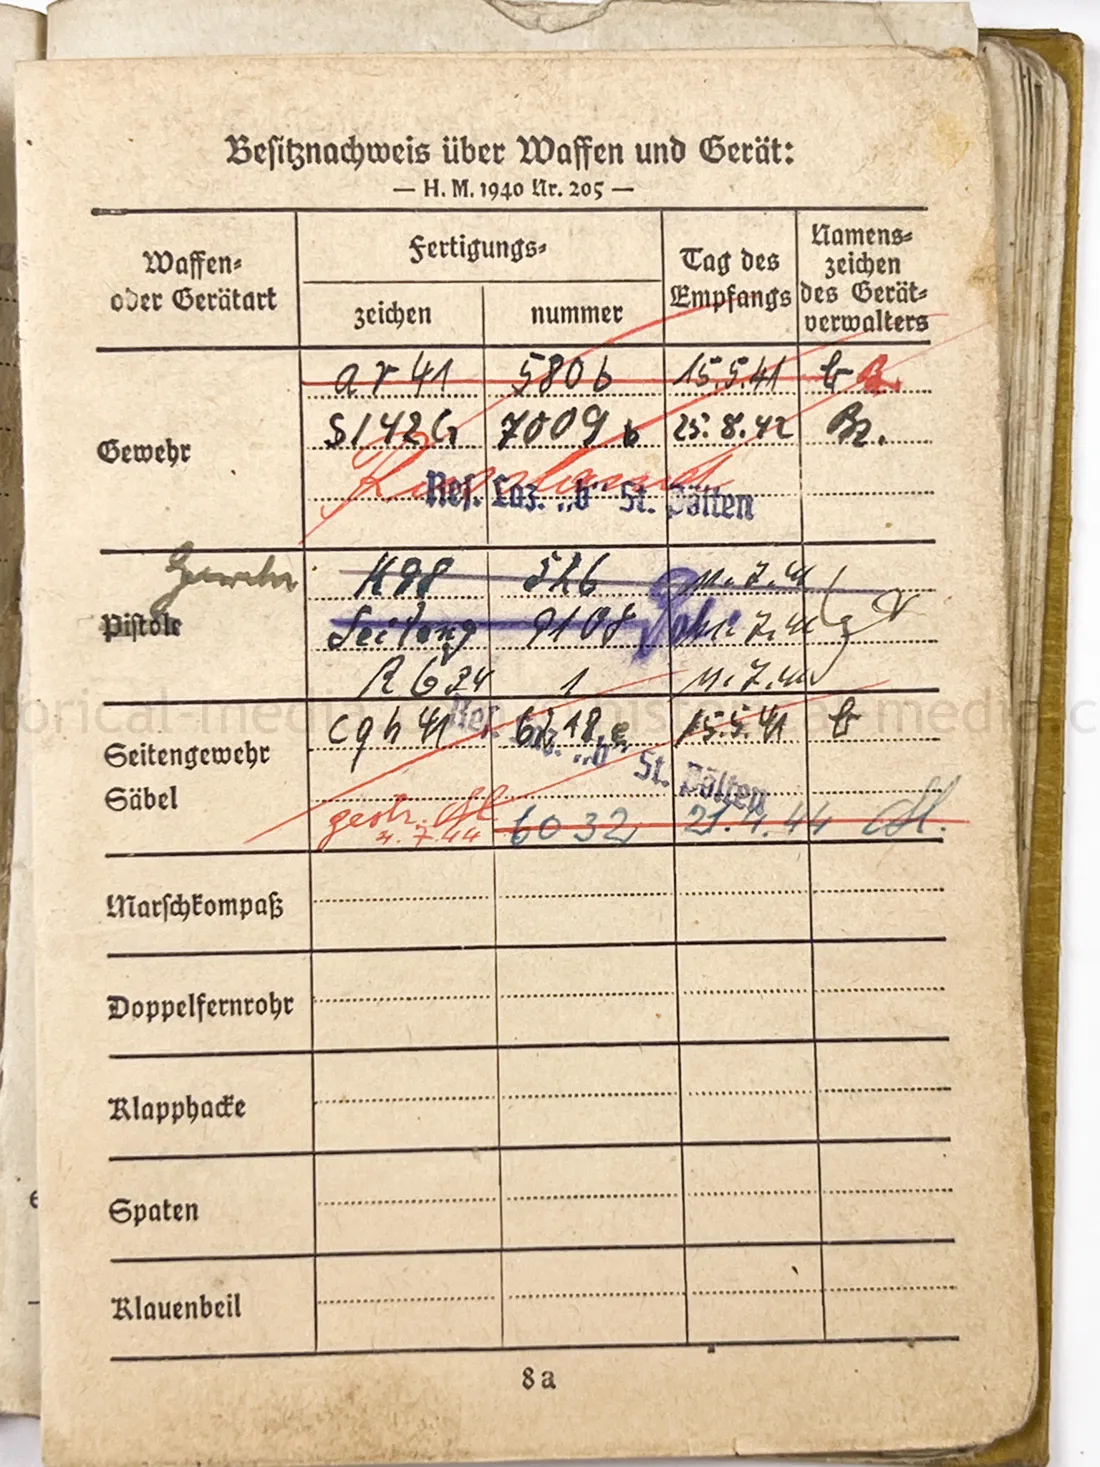 Besitznachweis über Waffen und Gerät:
— H. M. 1940 Nr. 205 —
Waffen- oder Gerätart
Fertigungs-
zeichen
nummer
Tag des Empfangs
Namenszeichen des Gerätverwalters
Gewehr
ar 41 580 b 15.5.41 b
S/42G 7009 b 25.8.42 Br.
Res. Laz. „b" St. Pölten
Gewehr
Pistole
K98 526 11.7.44
Seiteng 9108 11.7.44
RG 34 1 11.7.44
Seitengewehr
Säbel
cqh 41 6218 e 15.5.41 b
Res. Laz. „b" St. Pölten
gestr.
4.7.44
6032 21.4.44
Marschkompaß
Doppelfernrohr
Klapphacke
Spaten
Klauenbeil
8a